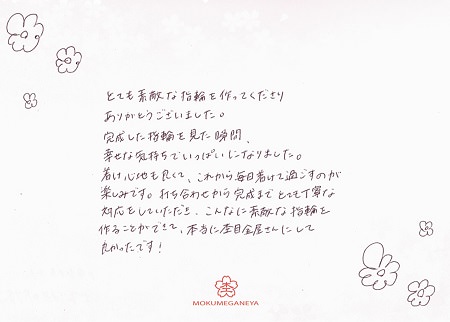 とても素敵な指輪を作ってくださり
ありがとうございました。
完成した指輪を見た瞬間、
幸せな気持ちでいっぱいになりました。
着け心地も良くて、これから毎日着けて過ごすのが
楽しみです。打ち合わせから完成までとても丁寧な
対応をしていただき、こんなに素敵な指輪を
作ることができて、本当に杢目金屋さんにして
良かったです!
杢
MOKUMEGANEYA